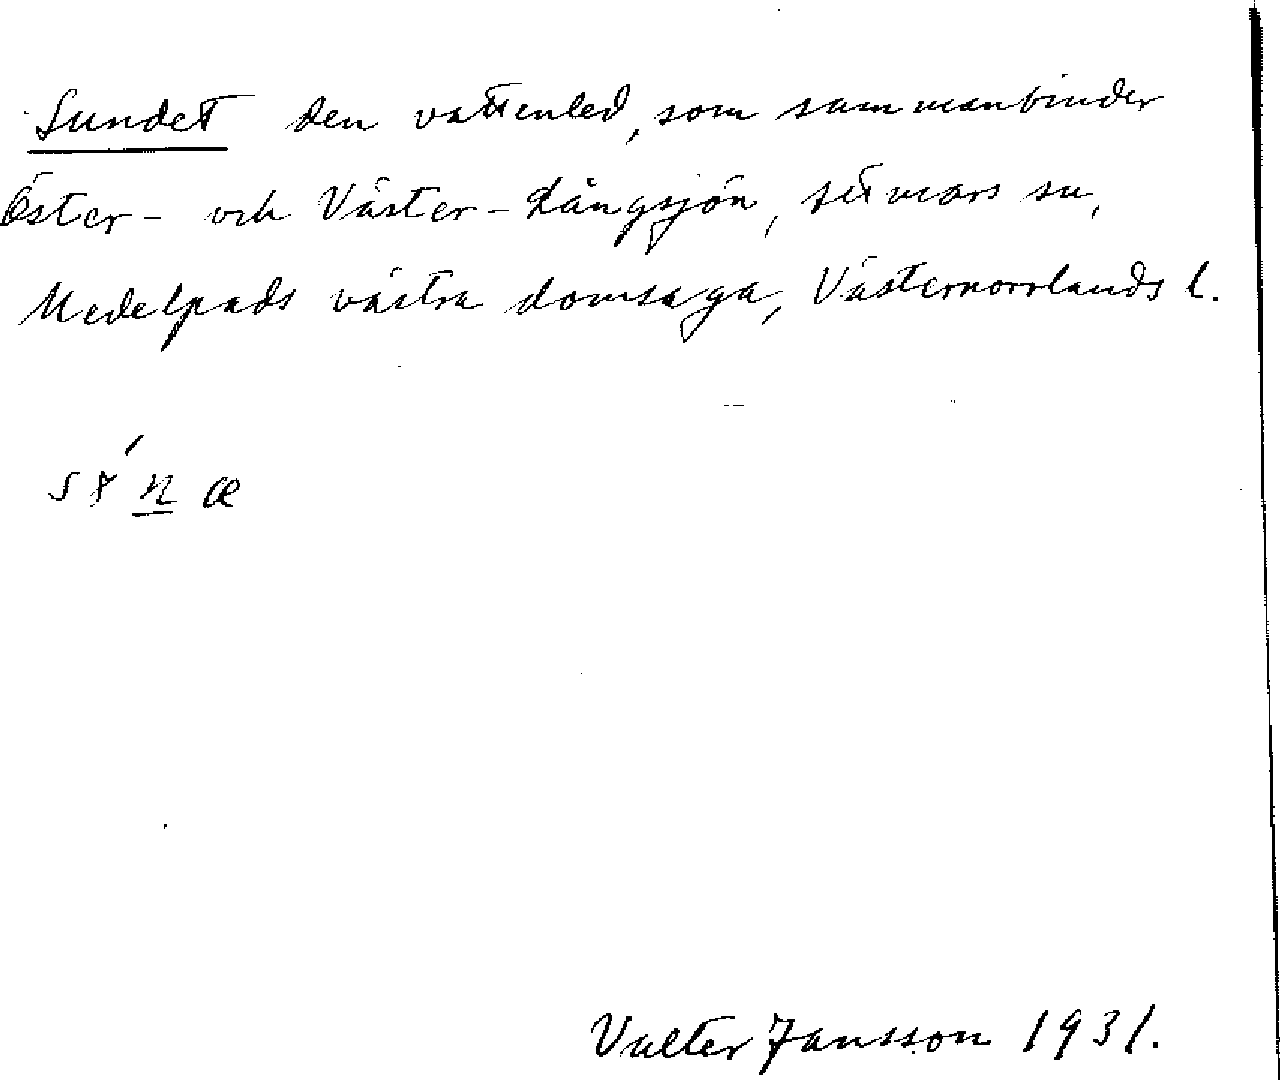 Sundet den vattenled, som sammanbinder
Öster- och Väster-Långsjön, Attmars sn,
Medelpads västra domsaga, Västernorrlands l.
Valter Jansson 1931.